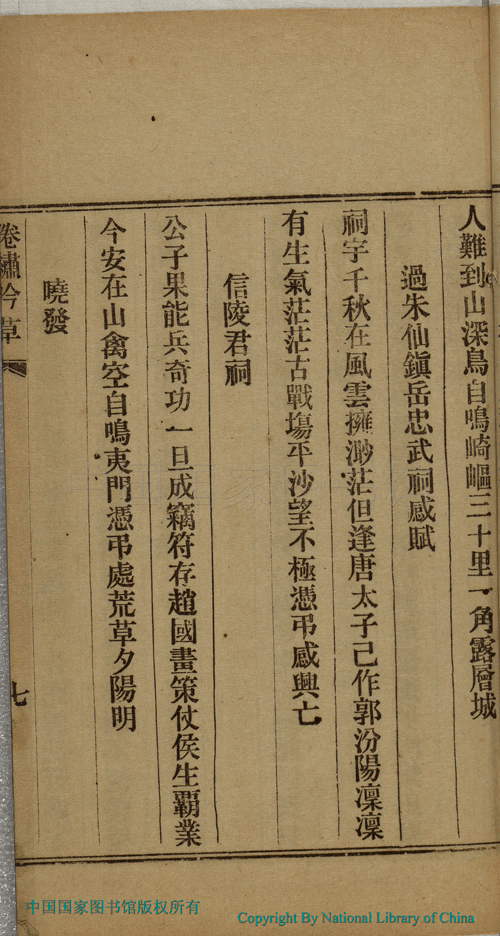 人難到山深鳥自鳴崎嶇三十里一角露層城
過朱仙鎭岳忠武祠感賦
祠宇千秋在風雲擁渺茫但逢唐太子已作郭汾陽凜凜
有生氣茫茫古戰塲平沙望不極憑弔感興亡
信陵君祠
公子果能兵奇功一旦成竊符存趙國畫策仗侯生覇業
今安在山禽空自鳴夷門憑弔處荒草夕陽明
曉發
卷繡吟草
七
中国国家图书馆版权所有
Copyright By National Library of China